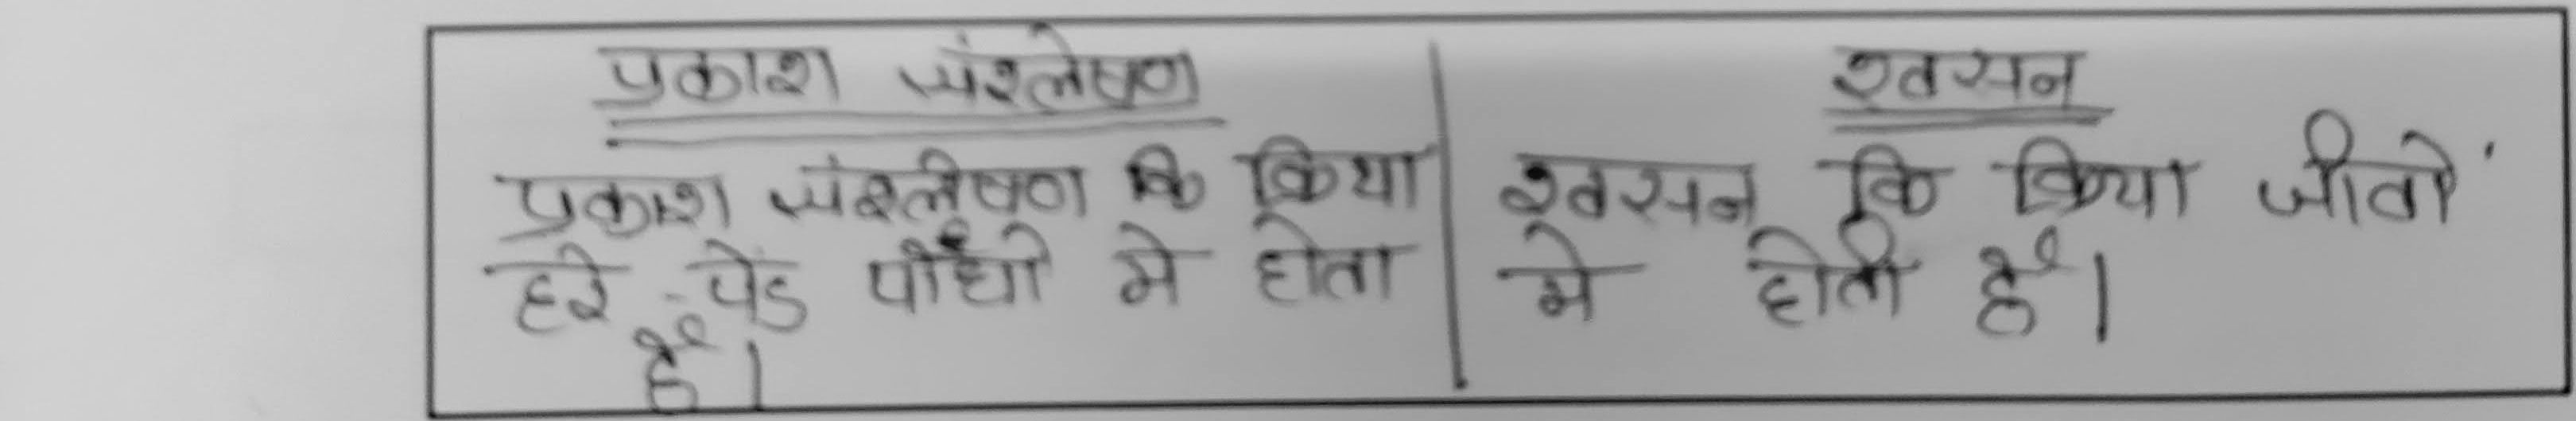 प्रकाश संश्लेषण
प्रकाश संश्लेषण कि क्रिया
हरे पेंड पौधों मे होता
है।
श्वसन
श्वसन कि क्रिया जीवों
मे होती है।